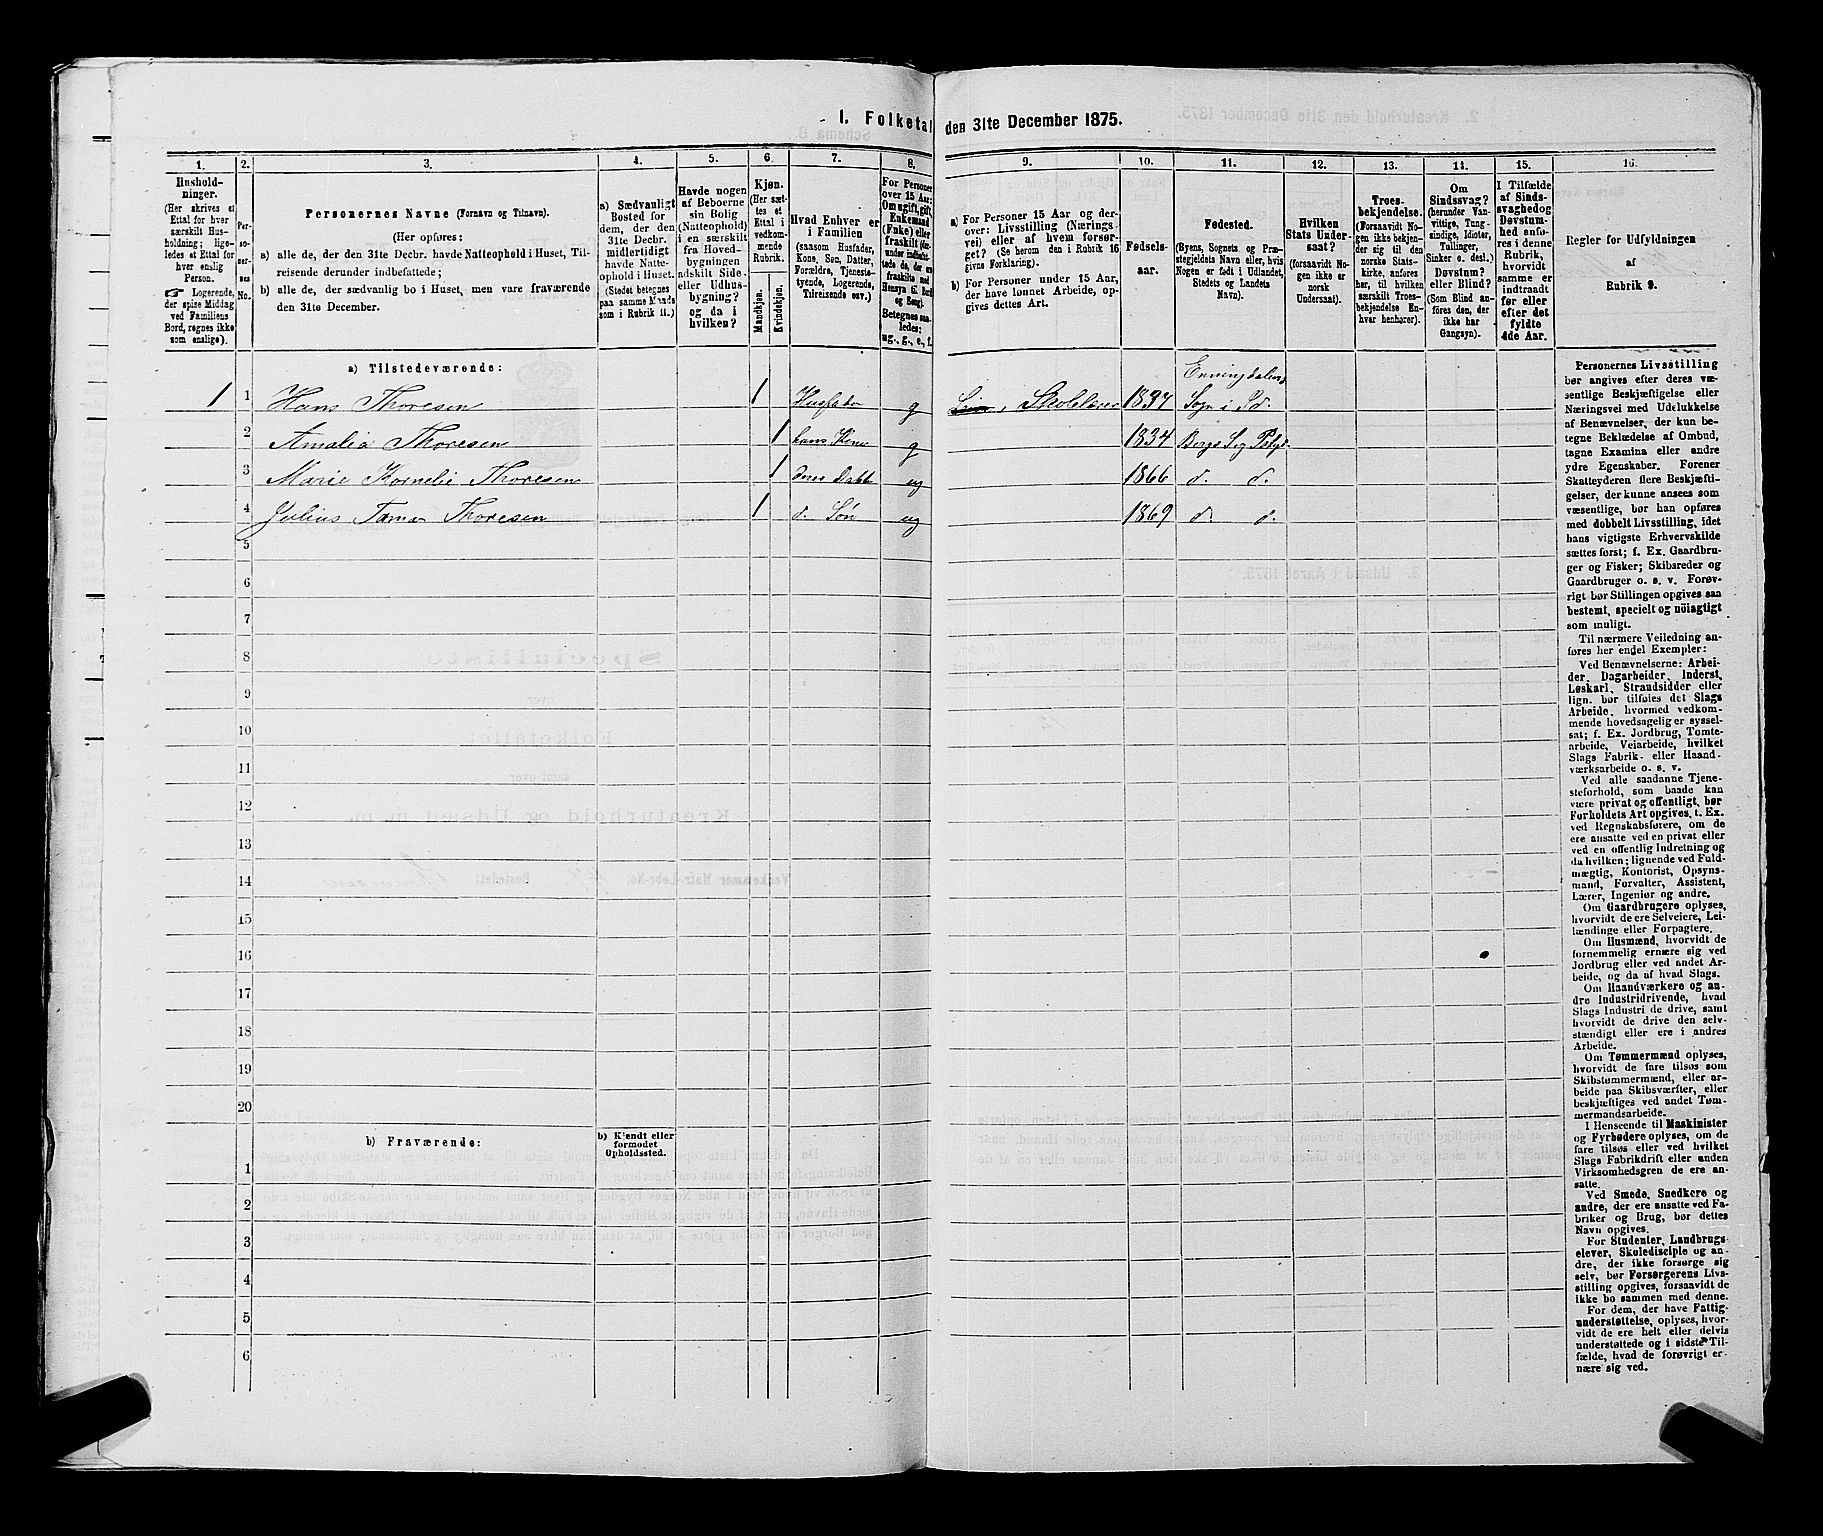 1. Folketal den 31te December 1875.
1.
2.
3.
4.
5.
6.
7.
8.
9.
10.
11.
12.
13.
14.
15.
16.
Hushold-
ninger.
(Her skrives et
Ettal for hver
særskilt Hus-
holdning; lige-
ledes et Ettal for
hver enslig
Person.
☞ Logerende,
der spise Middag
ved Familiens
Bord, regnes ikke
som enslige).
Per-
so-
ner-
nes
No.
Personernes Navne (Fornavn og Tilnavn).
(Her opføres:
a) alle de, der den 31te Decbr. havde Natteophold i Huset, Til-
reisende derunder indbefattede;
b) alle de, der sædvanlig bo i Huset, men vare fraværende
den 31te December.
a) Sædvanligt
Bosted for
dem, der den
31te Decbr.
midlertidigt
havde Natte-
ophold i Huset.
(Stedet betegnes
paa samme Maade
som i Rubrik 11.)
Havde nogen
af Beboerne
sin Bolig
(Natteophold)
i en særskilt
fra Hoved-
bygningen
adskilt Side-
eller Udhus-
bygning?
og da i
hvilken?
Kjøn.
(Her sæt-
tes et
Ettal i
vedkom-
mende
Rubrik.
Mandkjøn.
Kvindekjøn.
Hvad Enhver er
i Familien
(saasom Husfader,
Kone, Søn, Datter,
Forældre, Tjeneste-
tyende, Logerende,
Tilreisende osv.)
For Personer
over 15 Aar:
Om ugift, gift,
Enkemand
(Enke) eller
fraskilt
Betegnes saa-
ledes:
ug., g., e., f.
a) For Personer 15 Aar og der-
over: Livsstilling (Nærings-
vei) eller af hvem forsør-
get? (Se herom den i Rubrik 16
givne Forklaring).
b) For Personer under 15 Aar,
der have lønnet Arbeide, op-
gives dettes Art.
Fødsels-
aar.
Fødested.
(Byens, Sognets og Præ-
stegjeldets Navn eller, hvis
Nogen er født i Udlandet,
Stedets og Landets
Navn).
Hvilken
Stats Under-
saat?
(forsaavidt No-
gen ikke er
norsk
Undersaat).
Troes-
bekjendelse.
(Forsaavidt No-
gen ikke bekjen-
der sig til den
norske Stats-
kirke, anføres
her, til hvilken
særskilt Troes-
bekjendelse En-
hver henhører).
Om
Sindssvag?
(herunder Van-
vittige, Tung-
sindige, Idioter,
Tullinger,
Sinker o. desl.)
Døvstum?
eller Blind?
(Som Blind an-
føres den, der
ikke har
Gangsyn).
I Tilfælde
af Sinds-
svaghed og
Døvstum-
hed anfø-
res i denne
Rubrik,
hvorvidt
samme er
indtraadt
før eller
efter det
fyldte
4de Aar.
Regler for Udfyldningen
af
Rubrik 9.
a) Tilstedeværende:
1 1 Hans Thoresen 1 Husfader g Skolelærer 1837 Enningdalens
Sogn i Id.
2 Amalia Thoresen 1 hans Kone g 1834 Bergs Sog
3 Marie Kornelie Thoresen 1 deres Datter ug 1866 d. d.
4 Julius Thoresen 1 d. Søn ug 1869 d. d.
5
6
7
8
9
10
11
12
13
14
15
16
17
18
19
20
b) Fraværende:
b) Kjendt eller
formodet
Opholdssted.
1
2
3
4
5
6
Personernes Livsstilling
bør angives efter deres væ-
sentlige Beskjæftigelse eller
Næringsvei med Udelukkelse
af Benævnelser, der kun be-
tegne Beklædelse af Ombud,
tagne Examina eller andre
ydre Egenskaber. Forener
Skatteyderen flere Beskjæfti-
gelser, der kunne ansees som
væsentlige, bør han opføres
med dobbelt Livsstilling, idet
hans vigtigste Erhvervskilde
sættes først; f. Ex. Gaardbru-
ger og Fisker; Skibsreder og
Gaardbruger o. s. v. Forøv-
rigt bør Stillingen opgives saa
bestemt, specielt og nöiagtigt
som muligt.
Til nærmere Veiledning an-
føres her endel Exempler:
Ved Benævnelserne: Arbei-
der, Dagarbeider, Inderst,
Løskarl, Strandsidder eller
lign. bør tilføies det Slags
Arbeide, hvormed vedkom-
mende hovedsagelig er syssel-
sat; f. Ex. Jordbrug, Tomte-
arbeide, Veiarbeide, hvilket
Slags Fabrik- eller Haand-
værksarbeide o. s. v.
Ved alle saadanne Tjene-
steforhold, som baade kan
være privat og offentligt, bør
Forholdets Art opgives, t. Ex.
ved Regnskabsførere, om de
ere ansatte ved en privat eller
ved en offentlig Indretning og
da hvilken; lignende ved Fuld-
mægtig, Kontorist, Opsyns-
mand, Forvalter, Assistent,
Lærer, Ingeniør og andre.
Om Gaardbrugere oplyses,
hvorvidt de ere Selveiere, Lei-
lændinge eller Forpagtere.
Om Husmænd, hvorvidt de
fornemmelig ernære sig ved
Jordbrug eller ved andet Ar-
beide, og da af hvad Slags.
Om Haandværkere og an-
dre Industridrivende, hvad
Slags Industri de drive, samt
hvorvidt de drive den selv-
stændigt eller ere i andres
Arbeide.
Om Tømmermænd oplyses,
hvorvidt de fare tilsøs som
Skibstømmermænd, eller ar-
beide paa Skibsværfter, eller
beskjæftiges ved andet Tøm-
mermandsarbeide.
I Henseende til Maskinister
og Fyrbødere oplyses, om de
fare tilsøs eller ved hvilket
Slags Fabrikdrift eller anden
Virksomhedsgren de ere an-
satte.
Ved Smede, Snedkere og
andre, der ere ansatte ved Fa-
briker og Brug, bør dettes
Navn opgives.
For Studenter, Landbrugs-
elever, Skoledisciple og an-
dre, der ikke forsørge sig
selv, bør Forsørgerens Livs-
stilling opgives, forsaavidt de
ikke bo sammen med denne.
For dem, der have Fattig-
understøttelse, oplyses, hvor-
vidt de ere helt eller delvis
understøttede og i sidste Til-
fælde, hvad de forøvrigt er-
nære sig ved.